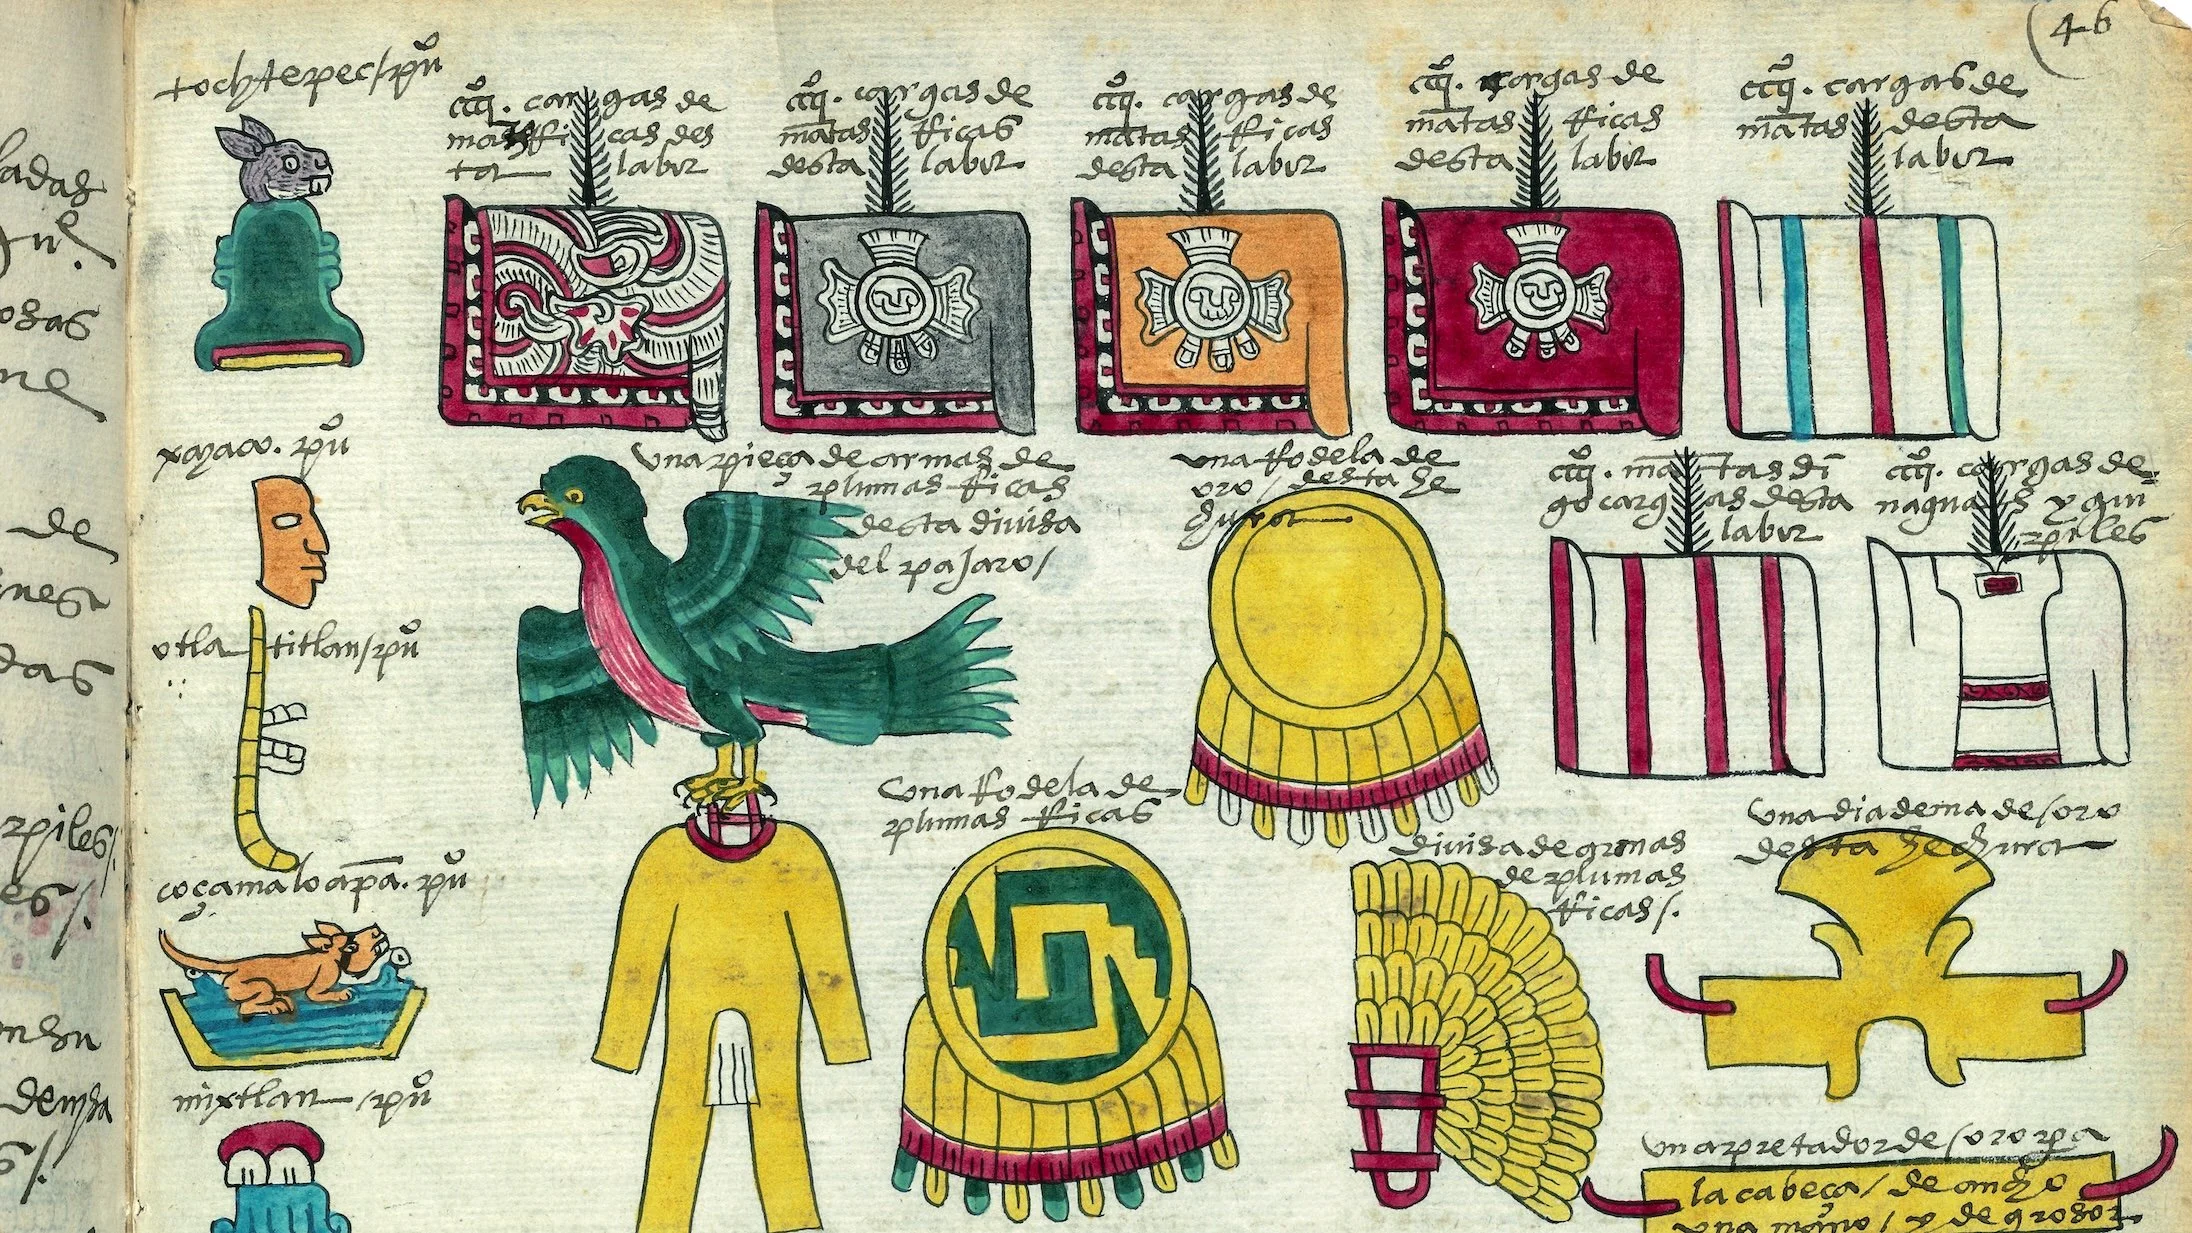 46
tochtepec/puo
ccccq. cargas de
mantas ricas des
ta labor
ccccq. cargas de
mantas ricas
desta labor
ccccq. cargas de
mantas ricas
desta labor
ccccq. cargas de
mantas ricas
desta labor
ccccq. cargas de
mantas desta
labor
xayaco. puo
una pieça de armas de
plumas ricas
desta divisa
del pajaro/
una rodela de
oro/desta he
chura
ccccq. mantas di
go cargas desta
labor
ccccq. cargas de
naguas y gui
piles
otla titlan/puo
una rodela de
plumas ricas
divisa de armas
de plumas
ricas/.
una diadema de/oro
desta hechura
coçamaloapa. puo
mixtlan/puo
un apretador de/oro pa
la cabeça/de ancho
una mano/y de grosor
ladas
de
piles/.
es/.